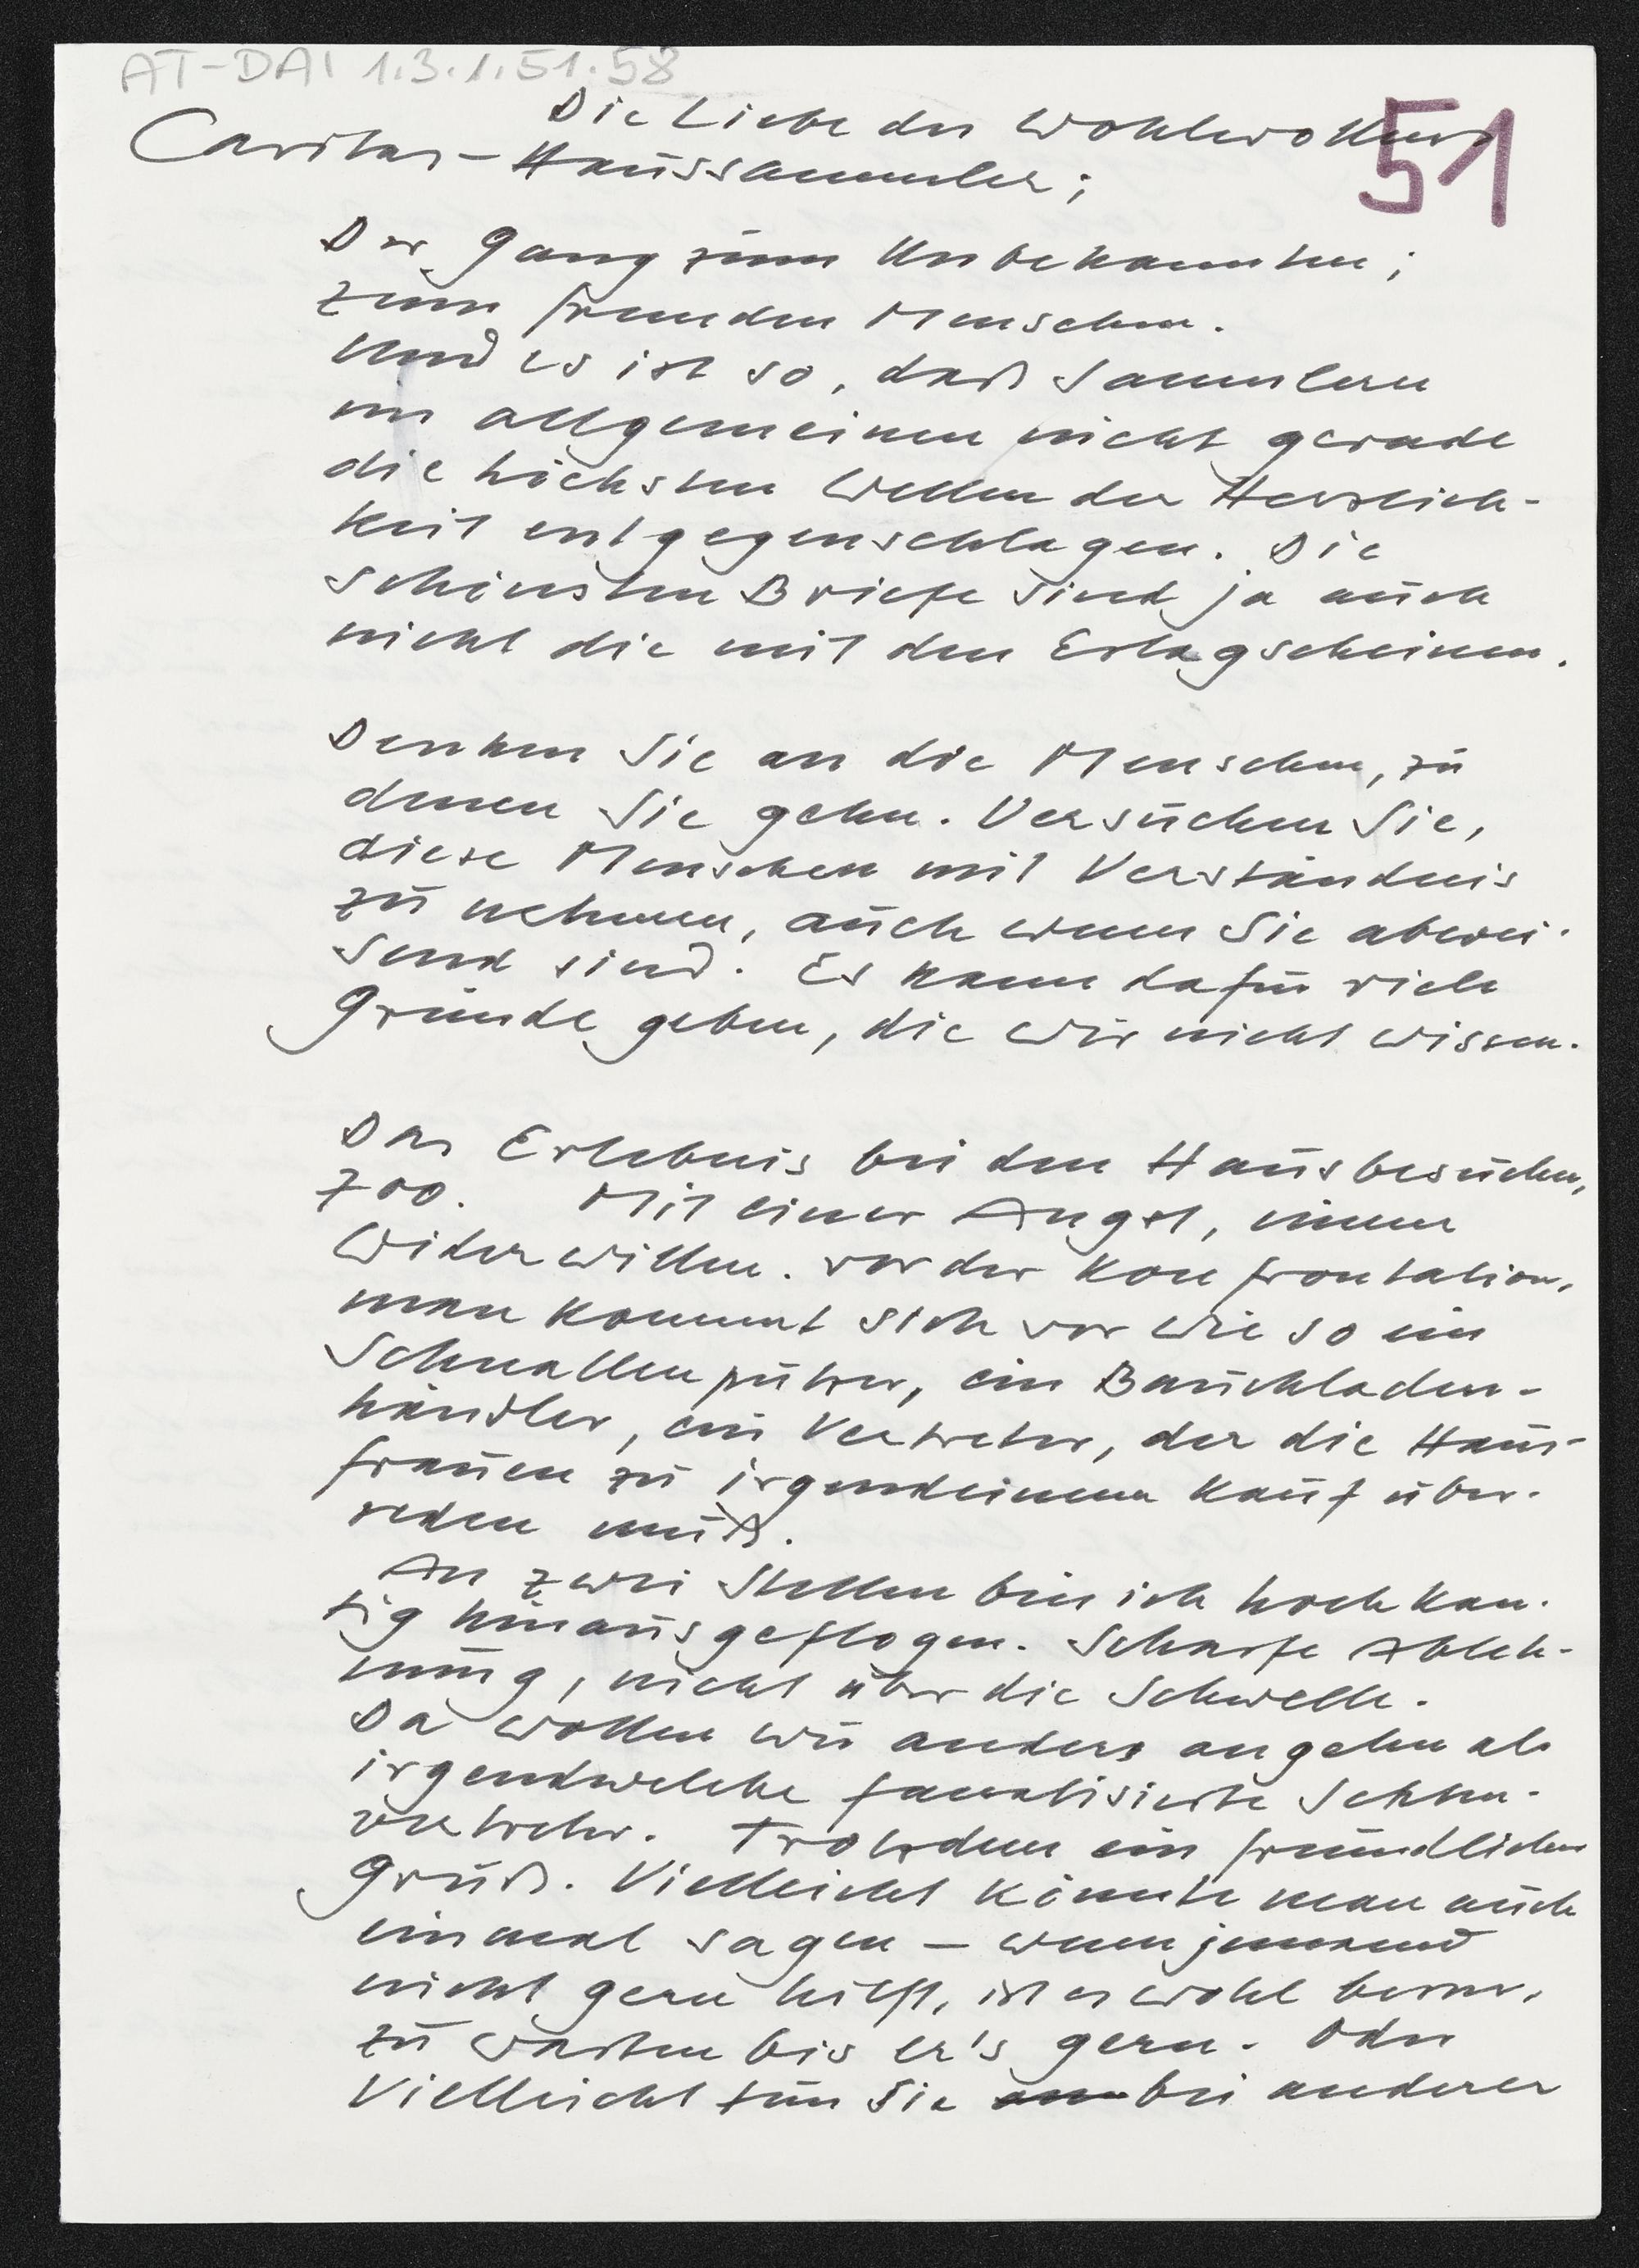 AT-DAI 1.3.1.51.58
Die Liebe des Wohlwollens
51
Caritas-Haussammler;
Der Gang zum Unbekannten;
zum fremden Menschen.
Und es ist so, daß Sammlern
im allgemeinen nicht gerade
die höchsten Wellen der Herzlich-
keit entgegenschlagen. Die
schönsten Briefe sind ja auch
nicht die mit den Erlagscheinen.
Denken Sie an die Menschen, zu
denen Sie gehn. Versuchen Sie,
diese Menschen mit Verständnis
zu nehmen, auch wenn Sie abwei-
send sind. Es kann dafür viele
Gründe geben, die wir nicht wissen.
Das Erlebnis bei den Hausbesuchen,
700. Mit einer Angst, einem
Widerwillen. vor der Konfrontation,
man kommt sich vor wie so ein
Schnallenputzer, ein Bauchladen-
händler, ein Vertreter, der die Haus-
frauen zu irgendeinem Kauf über-
reden muß.
An zwei Stellen bin ich hochkan-
tig hinausgeflogen. Scharfe Ableh-
nung, nicht über die Schwelle.
Da wollen wir anders angehn als
irgendwelche fanatisierte Sekten-
vertreter. Trotzdem ein freundlicher
Gruß. Vielleicht könnte man auch
einmal sagen – wenn jemand
nicht gern hilft, ist es wohl besser,
zu warten bis er's gern. Oder
Vielleicht tun Sie bei anderer